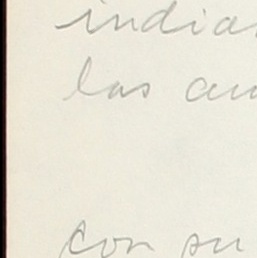 india
las
con su